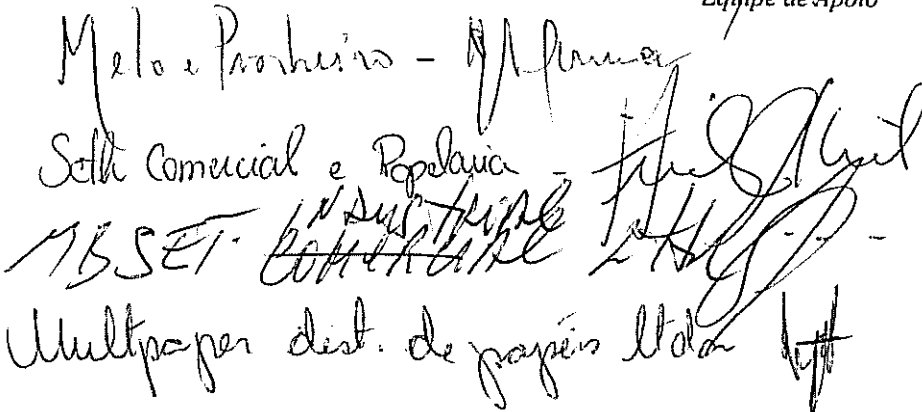 Equipe de Apoio
Melo e Pronheiro -
Seth Comercial e Papelaria -
MBSET. INDUSTRIAL COMERCIAL LTDA -
Multpaper dist. de papéis ltda